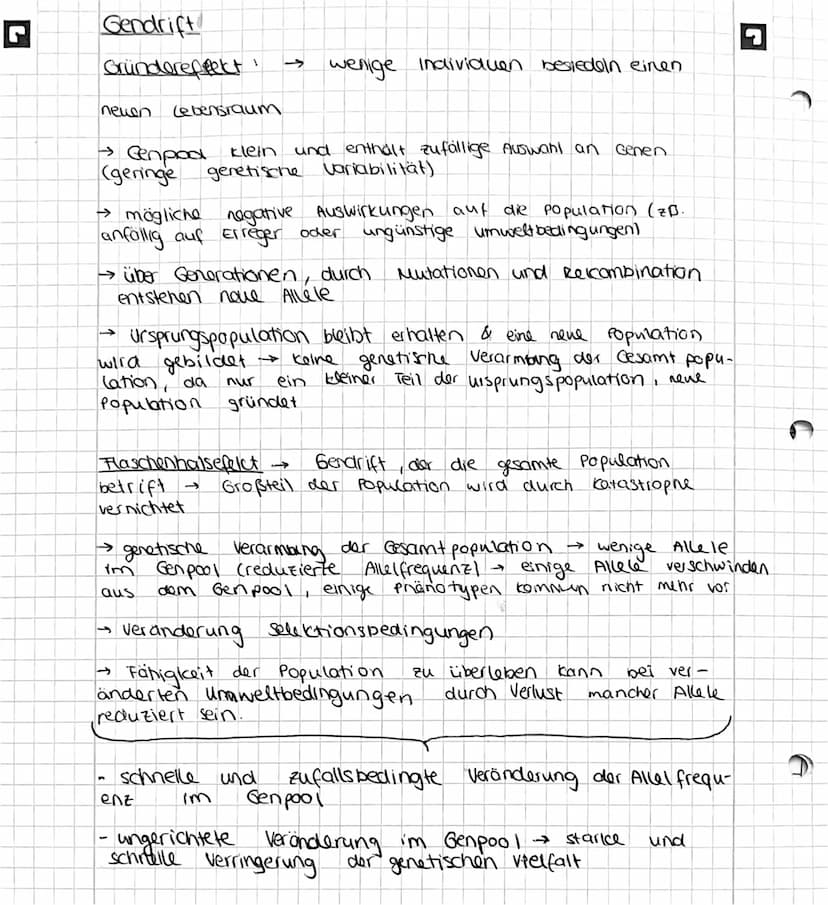 Gendrift
Gründereffekt: → wenige Individuen besiedeln einen
neuen Lebensraum
→ Genpool klein und enthält zufällige Auswahl an Genen
(geringe genetische Variabilität)
→ mögliche negative Auswirkungen auf die Population (zB.
anfällig auf Erreger oder ungünstige Umweltbedingungen)
→ über Generationen, durch Mutationen und Rekombination
entstehen neue Allele
→ Ursprungspopulation bleibt erhalten & eine neue Population
wird gebildet → keine genetische Verarmung der Gesamt popu-
lation, da nur ein kleiner Teil der Ursprungspopulation, neue
Population gründet
Flaschenhalsefekt → Gendrift, der die gesamte Population
betrift → Großteil der Population wird durch Katastrophe
vernichtet
→ genetische Verarmung der Gesamtpopulation → wenige Allele
im Genpool (reduzierte Allelfrequenz) → einige Allele verschwinden
aus dem Genpool, einige Phänotypen kommen nicht mehr vor
→ Veränderung Selektionsbedingungen
→ Fähigkeit der Population zu überleben kann bei ver-
änderten Umweltbedingungen durch Verlust mancher Allele
reduziert sein.
- schnelle und zufallsbedingte Veränderung der Allelfrequ-
enz im Genpool
- ungerichtete Veränderung im Genpool → starke und
schnelle Verringerung der genetischen Vielfalt